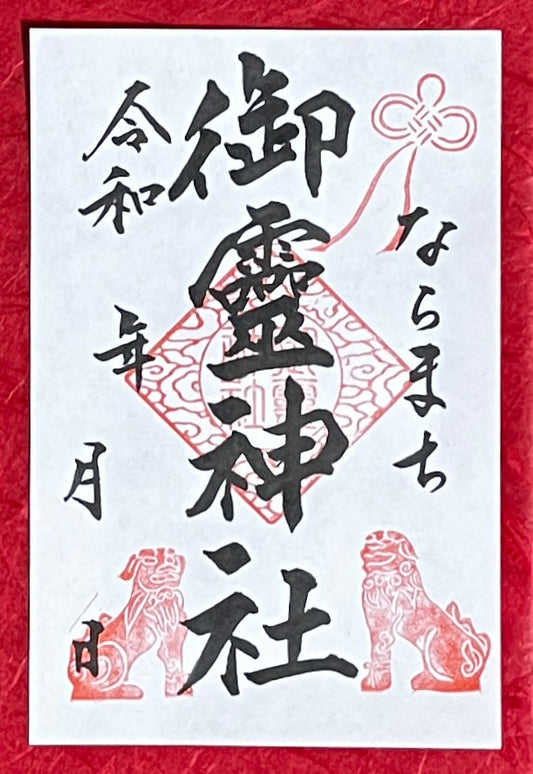 ならまち
御靈神社
令和 年 月 日